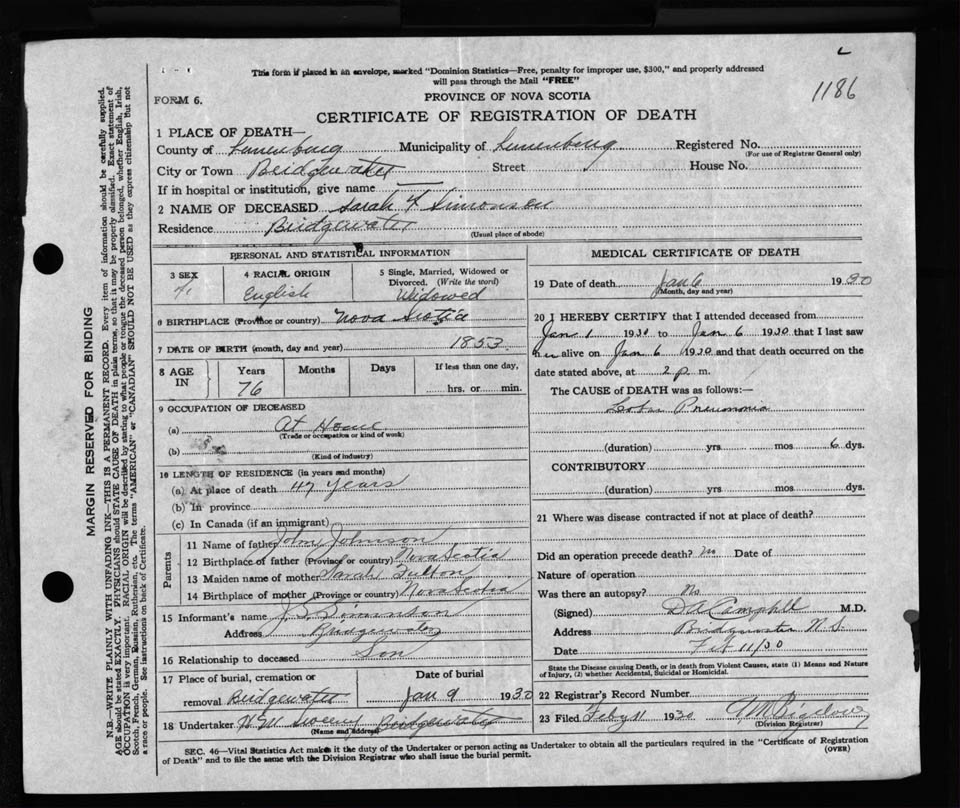 1186
This form if placed in an envelope, marked "Dominion Statistics—Free, penalty for improper use, $300," and properly addressed
will pass through the Mail "FREE"
FORM 6.
PROVINCE OF NOVA SCOTIA
CERTIFICATE OF REGISTRATION OF DEATH
1 PLACE OF DEATH—
County of Lunenburg Municipality of Lunenburg Registered No.
(For use of Registrar General only)
City or Town Bridgewater Street House No.
If in hospital or institution, give name
2 NAME OF DECEASED Sarah Simonson
Residence Bridgewater
(Usual place of abode)
PERSONAL AND STATISTICAL INFORMATION
3 SEX 4 RACIAL ORIGIN 5 Single, Married, Widowed or
Divorced. (Write the word)
English Widowed
6 BIRTHPLACE (Province or country) Nova Scotia
7 DATE OF BIRTH (month, day and year) 1853
8 AGE IN Years Months Days If less than one day,
76 hrs. or min.
9 OCCUPATION OF DECEASED
(a) At Home
(Trade or occupation or kind of work)
(b)
(Kind of industry)
10 LENGTH OF RESIDENCE (in years and months)
(a) At place of death 47 years
(b) In province
(c) In Canada (if an immigrant)
Parents
11 Name of father John Johnson
12 Birthplace of father (Province or country) Nova Scotia
13 Maiden name of mother Sarah Fulton
14 Birthplace of mother (Province or country) Nova Scotia
15 Informant's name Simonson
Address Bridgewater
16 Relationship to deceased Son
17 Place of burial, cremation or Date of burial
removal Bridgewater Jan 9 1930
18 Undertaker Bridgewater
(Name and address)
MEDICAL CERTIFICATE OF DEATH
19 Date of death Jan 6 1930
(Month, day and year)
20 I HEREBY CERTIFY that I attended deceased from
Jan 1 1930 to Jan 6 1930 that I last saw
her alive on Jan 6 1930 and that death occurred on the
date stated above, at 2 p. m.
The CAUSE of DEATH was as follows:—
Lobar Pneumonia
(duration) yrs mos 6 dys.
CONTRIBUTORY
(duration) yrs. mos. dys.
21 Where was disease contracted if not at place of death?
Did an operation precede death? No Date of
Nature of operation
Was there an autopsy? No
(Signed) D A Campbell M.D.
Address Bridgewater N.S.
Date Feb 11/30
State the Disease causing Death, or in death from Violent Causes, state (1) Means and Nature
of Injury, (2) whether Accidental, Suicidal or Homicidal.
22 Registrar's Record Number
23 Filed Feby 11 1930 Bigelow
(Division Registrar)
SEC. 46—Vital Statistics Act makes it the duty of the Undertaker or person acting as Undertaker to obtain all the particulars required in the "Certificate of Registration
of Death" and to file the same with the Division Registrar who shall issue the burial permit.
(OVER)
MARGIN RESERVED FOR BINDING
N.B.—WRITE PLAINLY WITH UNFADING INK—THIS IS A PERMANENT RECORD. Every item of information should be carefully supplied.
AGE should be stated EXACTLY. PHYSICIANS should STATE CAUSE OF DEATH in plain terms, so that it may be properly classified. Exact statement of
OCCUPATION is very important. RACIAL ORIGIN will be described by stating to what people or tongue the deceased person belonged, whether English, Irish,
Scotch, French, German, Russian, Ruthenian, etc. The terms "AMERICAN" or "CANADIAN" SHOULD NOT BE USED as they express citizenship but not
a race or people. See instructions on back of Certificate.